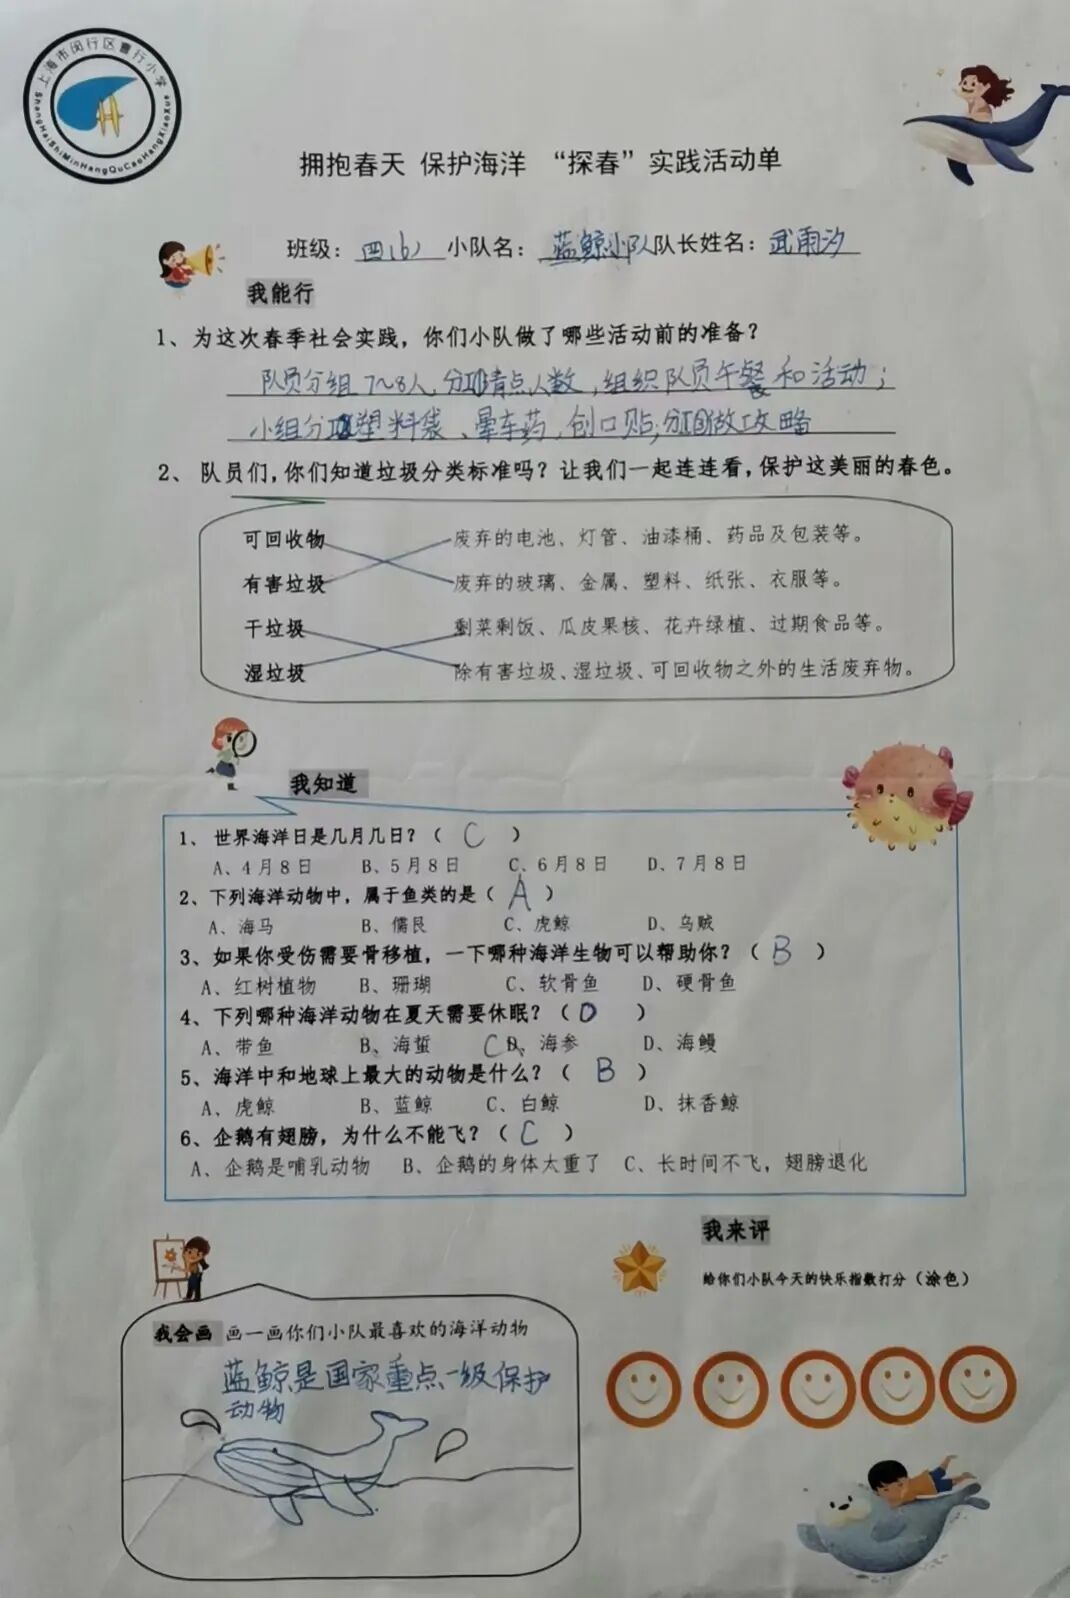 上海市闵行区曹行小学
ShangHaiShiMinHangQuCaoHangXiaoXue
拥抱春天 保护海洋 “探春”实践活动单
班级：四(6) 小队名：蓝鲸小队 队长姓名：武雨汐
我能行
1、为这次春季社会实践，你们小队做了哪些活动前的准备？
队员分组7~8人,分工清点人数,组织队员午餐和活动;
小组分工塑料袋、晕车药、创口贴,分工做攻略
2、队员们，你们知道垃圾分类标准吗？让我们一起连连看，保护这美丽的春色。
可回收物 废弃的电池、灯管、油漆桶、药品及包装等。
有害垃圾 废弃的玻璃、金属、塑料、纸张、衣服等。
干垃圾 剩菜剩饭、瓜皮果核、花卉绿植、过期食品等。
湿垃圾 除有害垃圾、湿垃圾、可回收物之外的生活废弃物。
我知道
1、世界海洋日是几月几日？（ C ）
A、4月8日 B、5月8日 C、6月8日 D、7月8日
2、下列海洋动物中，属于鱼类的是（ A ）
A、海马 B、儒艮 C、虎鲸 D、乌贼
3、如果你受伤需要骨移植，一下哪种海洋生物可以帮助你？（ B ）
A、红树植物 B、珊瑚 C、软骨鱼 D、硬骨鱼
4、下列哪种海洋动物在夏天需要休眠？（ D ）
A、带鱼 B、海蜇 C、海参 D、海鳗
5、海洋中和地球上最大的动物是什么？（ B ）
A、虎鲸 B、蓝鲸 C、白鲸 D、抹香鲸
6、企鹅有翅膀，为什么不能飞？（ C ）
A、企鹅是哺乳动物 B、企鹅的身体太重了 C、长时间不飞，翅膀退化
我来评
给你们小队今天的快乐指数打分（涂色）
我会画 画一画你们小队最喜欢的海洋动物
蓝鲸是国家重点一级保护
动物